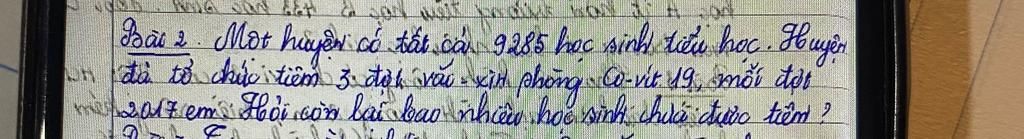 Bài 2. Một huyện có tất cả 9285 học sinh tiểu học. Huyện
đã tổ chức tiêm 3 đợt vắc-xin phòng Co-vit 19, mỗi đợt
2017 em. Hỏi còn lại bao nhiêu học sinh chưa được tiêm?